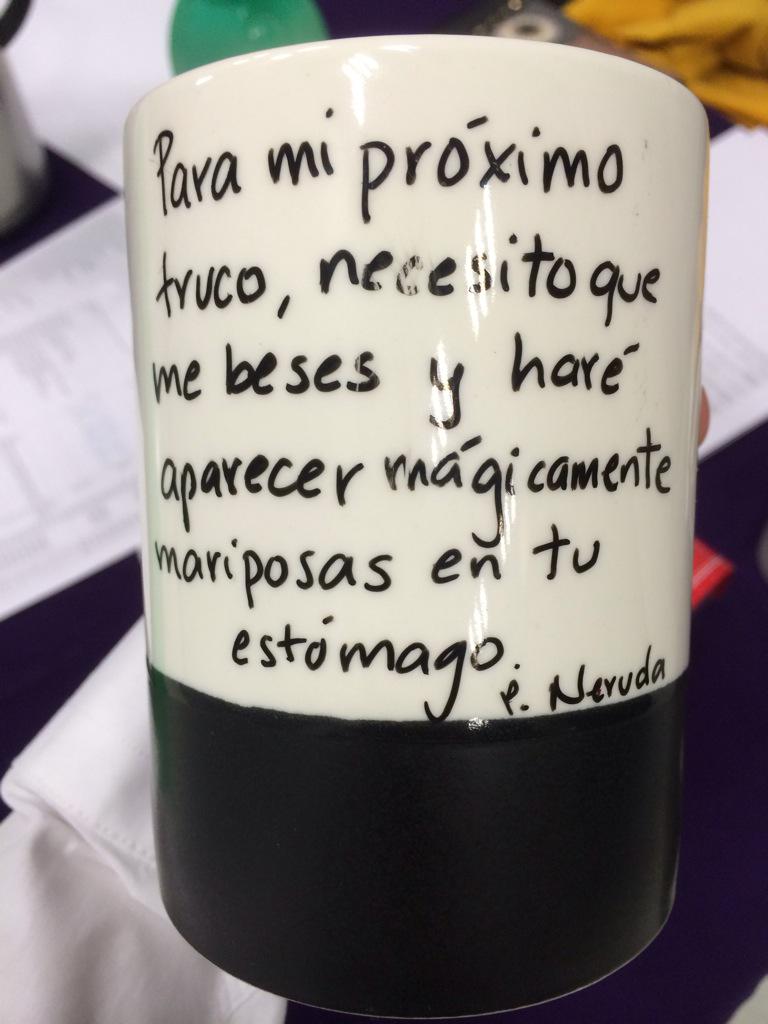 Para mi próximo
truco, necesito que
me beses y haré
aparecer mágicamente
mariposas en tu
estómago.
P. Neruda